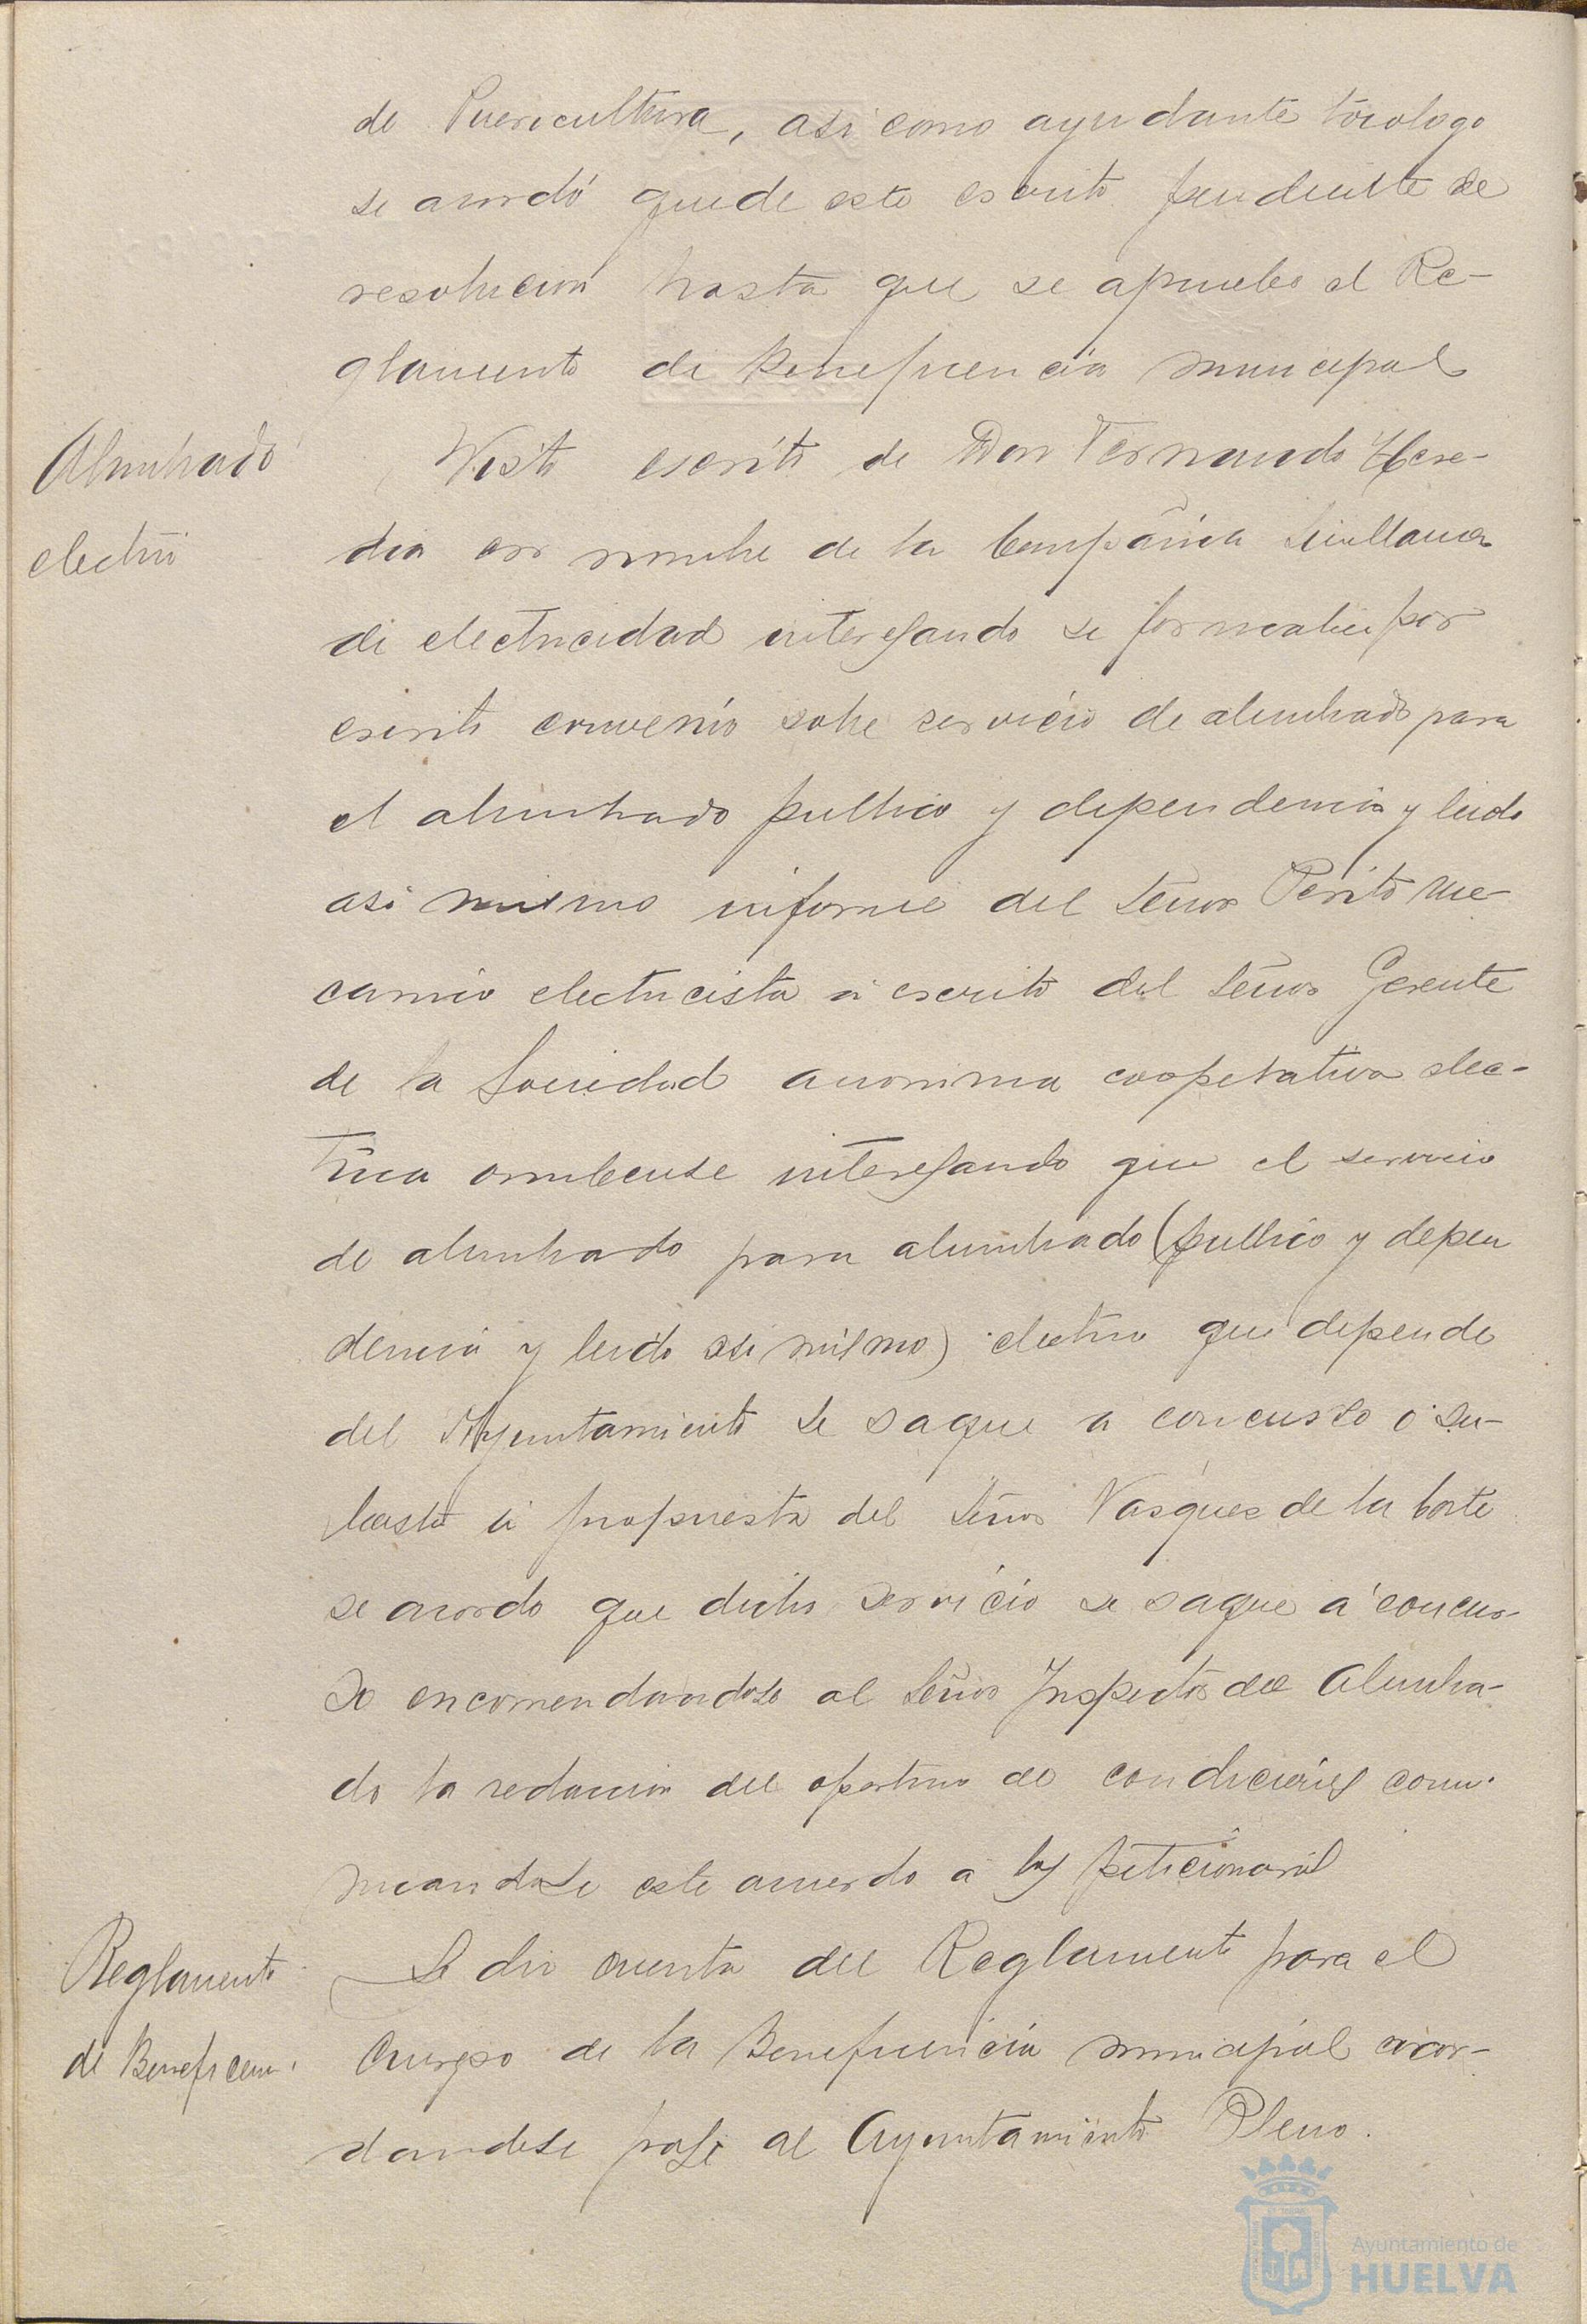 de Puericultura, asi como ayudante tocologo
se acordó quede este escrito pendiente de
resolucion hasta que se apruebe el Re-
glamento de Beneficencia municipal
Alumbrado
electrico
Visto escrito de Don Fernando Here-
dia en nombre de la Compañia Sevillana
de electricidad interesando se formalice por
escrito convenio sobre servicio de alumbrado para
el alumbrado publico y dependencia y leido
asi mismo informe del Señor Perito me-
canico electricista a escrito del Señor Gerente
de la Sociedad anonima cooperativa elec-
trica onubense interesando que el servicio
de alumbrado para alumbrado (publico y depen
dencia y leido asi mismo) electrico que depende
del Ayuntamiento se saque a concurso o su-
basta a propuesta del Señor Vasquez de la Corte
se acordo que dicho servicio se saque á concur-
so encomendandose al Señor Inspector del Alumbra-
do la redaccion del oportuno de condiciones comu-
nicandose este acuerdo a los peticionarios
Reglamento
de Beneficen.
Se dio cuenta del Reglamento para el
Cuerpo de la Beneficencia municipal acor-
dandose pase al Ayuntamiento Pleno.
Ayuntamiento de
HUELVA